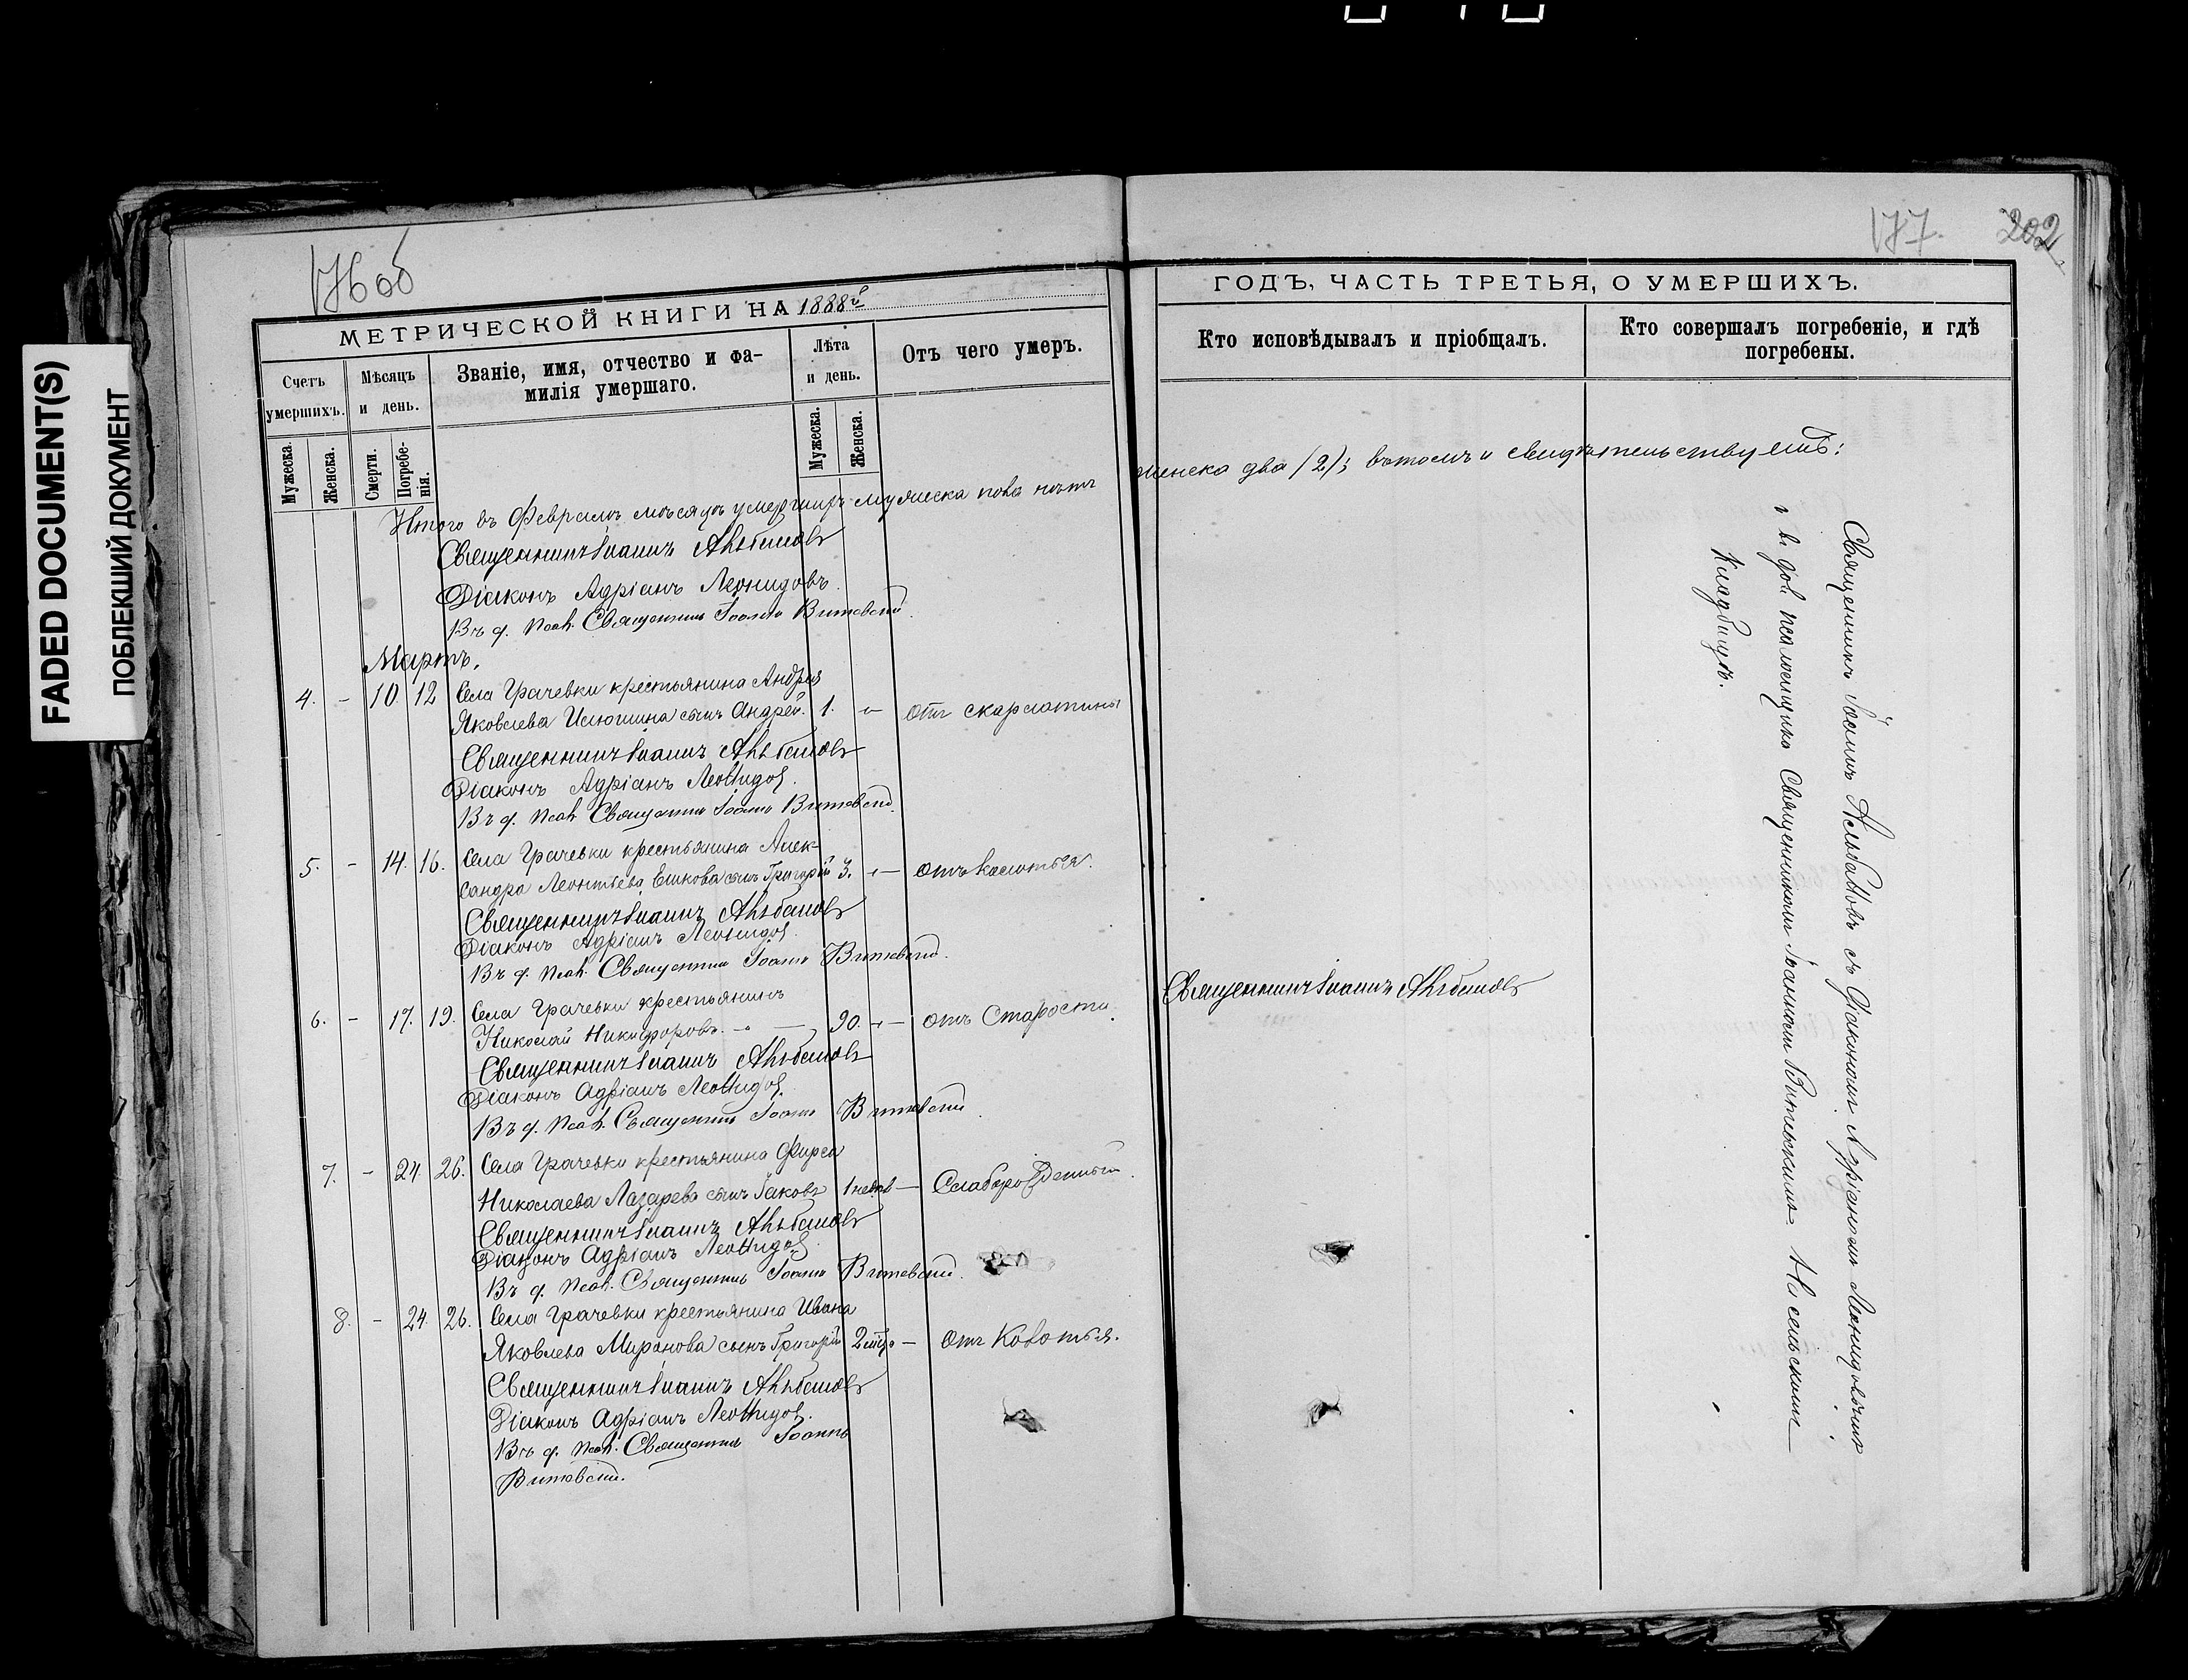 FADED DOCUMENT(S)
ПОБЛЕКШИЙ ДОКУМЕНТ
176 об
177.
202
МЕТРИЧЕСКОЙ КНИГИ НА 1888й
ГОДЪ, ЧАСТЬ ТРЕТЬЯ, О УМЕРШИХЪ.
Счетъ умершихъ.
Мужеска.
Женска.
Мѣсяцъ и день.
Смерти.
Погребенія.
Званіе, имя, отчество и фа-
милія умершаго.
Лѣта и день.
Мужеска.
Женска.
Отъ чего умеръ.
Кто исповѣдывалъ и пріобщалъ.
Кто совершалъ погребеніе, и гдѣ
погребены.
Итого въ Февралѣ мѣсяцѣ умершихъ мужеска пола
женска два (2); въ томъ и свидѣтельствуютъ:
Священникъ Іоаннъ Альбановъ
Діаконъ Адріанъ Леонидовъ.
Въ д. псал. Священникъ Іоаннъ
Мартъ.
4. - 10. 12 Села Грачевки крестьянина Андрея
Яковлева сынъ Андрей. 1. - отъ скарлатины
Священникъ Іоаннъ Альбановъ
Діаконъ Адріанъ Леонидов.
Въ д. псал. Священникъ Іоаннъ
5. - 14. 16. Села Грачевки крестьянина Алек-
сандра Леонтьева сынъ Григорій 3. - отъ колотья.
Священникъ Іоаннъ Альбановъ
Діаконъ Адріанъ Леонидов.
Въ д. псал. Священникъ Іоаннъ
6. - 17. 19. Села Грачевки крестьянинъ
Николай Никифоровъ. 90. - отъ Старости.
Священникъ Іоаннъ Альбановъ
Священникъ Іоаннъ Альбановъ
Діаконъ Адріанъ Леонидов.
Въ д. псал. Священникъ Іоаннъ
7. - 24 26. Села Грачевки крестьянина Фирса
Николаева Лазарева сынъ Іаковъ 1 - Слаборожденный.
Священникъ Іоаннъ Альбановъ
Діаконъ Адріанъ Леонидов.
Въ д. псал. Священникъ Іоаннъ
8. - 24. 26. Села Грачевки крестьянина Ивана
Яковлева Миронова сынъ Григорій 2 - Отъ Колотья.
Священникъ Іоаннъ Альбановъ
Діаконъ Адріанъ Леонидов.
Въ д. псал. Священникъ Іоаннъ
Священникъ Іоаннъ Альбановъ съ Діакономъ Адріаномъ Леонидовымъ
и и. дол. псаломщика Священникомъ Іоанномъ На сельскомъ
кладбищѣ.